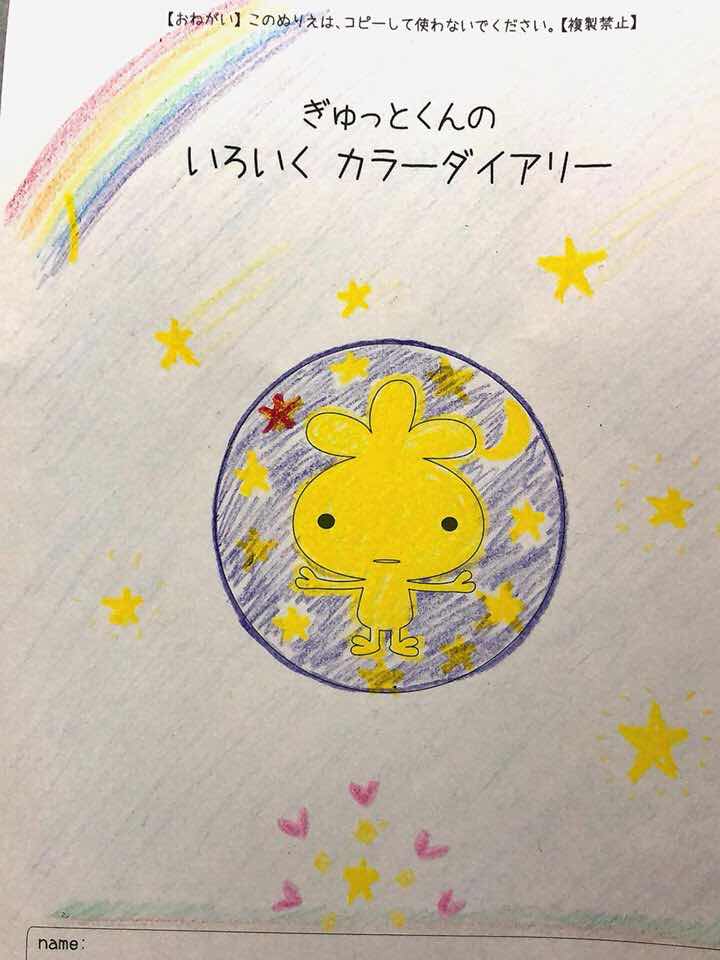 【おねがい】このぬりえは、コピーして使わないでください。【複製禁止】
ぎゅっとくんの
いろいく カラーダイアリー
name: